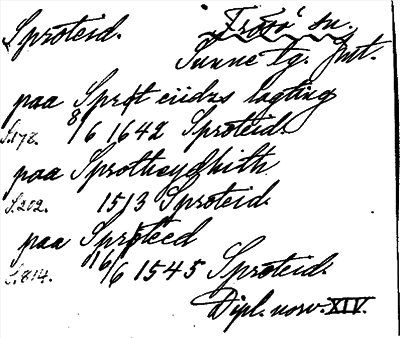 Sproteid. Frösö sn.
Sunne tg. Jmt.
paa Sprøt eiidzs lagting
S.178. 8/6 1642 Sproteid.
paa Sprotheydhith
S.202. 1513 Sproteid.
paa Sprøteed
S.814. 16/6 1545 Sproteid.
Dipl. norv. XIV.